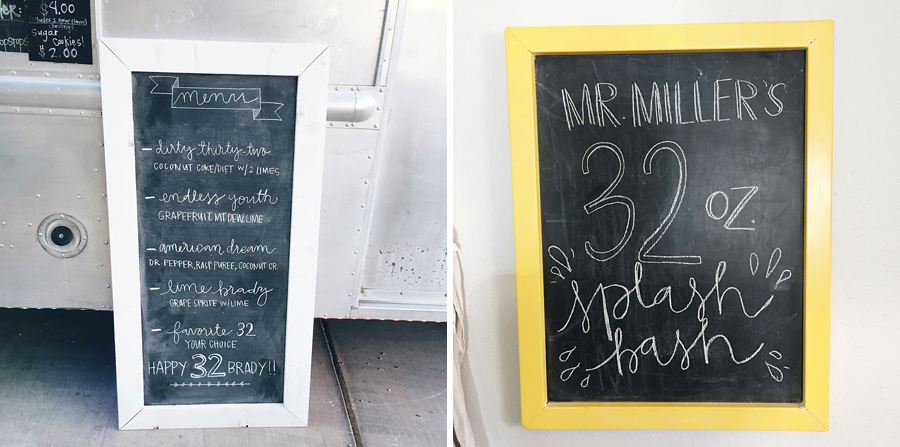 $4.00
Sugar
Cookies!
$2.00
menu
– dirty thirty-two
COCONUT COKE/DIET W/2 LIMES
– endless youth
GRAPEFRUIT, MT DEW, LIME
– american dream
DR. PEPPER, RASP. PUREE, COCONUT CR.
– lime brady
GRAPE SPRITE W/LIME
– favorite 32
YOUR CHOICE
HAPPY 32 BRADY!!
MR. MILLER'S
32 OZ.
splash
bash